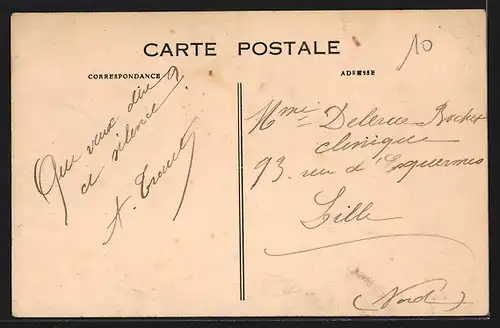 10
CARTE POSTALE
CORRESPONDANCE
ADRESSE
Que veux dire
ce silence ?
A.
Mme Delerue
clinique
93. rue d'Esquermes
Lille
(Nord)